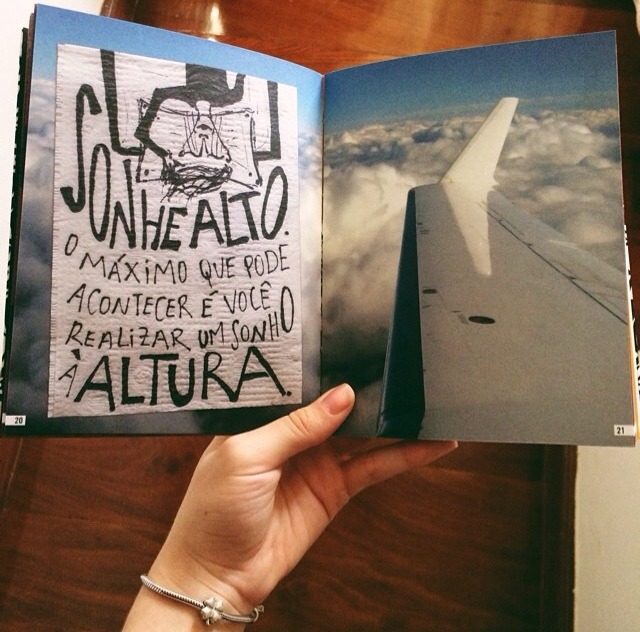 SONHE ALTO.
O MÁXIMO QUE PODE
ACONTECER É VOCÊ
REALIZAR UM SONHO
À ALTURA.
20
21